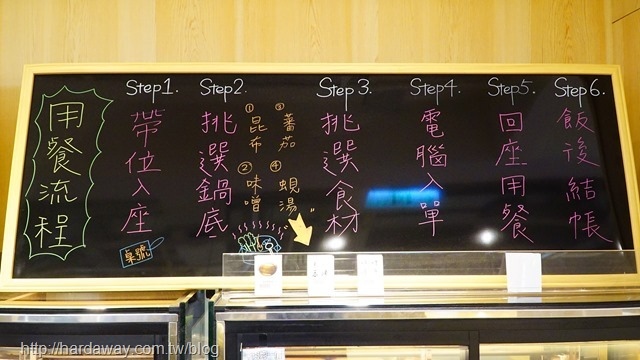 用餐流程
Step1.
帶位入座
桌號
Step2.
挑選鍋底
①昆布
②味噌
③蕃茄
④蜆湯
Step3.
挑選食材
Step4.
電腦入單
Step5.
回座用餐
Step6.
飯後結帳
http://hardaway.com.tw/blog